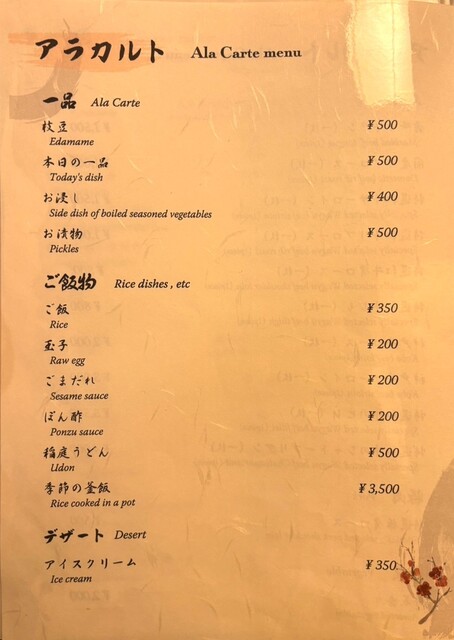 アラカルト Ala Carte menu
一品 Ala Carte
枝豆 ¥500
Edamame
本日の一品 ¥500
Today's dish
お浸し ¥400
Side dish of boiled seasoned vegetables
お漬物 ¥500
Pickles
ご飯物 Rice dishes , etc
ご飯 ¥350
Rice
玉子 ¥200
Raw egg
ごまだれ ¥200
Sesame sauce
ぽん酢 ¥200
Ponzu sauce
稲庭うどん ¥500
Udon
季節の釜飯 ¥3,500
Rice cooked in a pot
デザート Desert
アイスクリーム ¥350
Ice cream